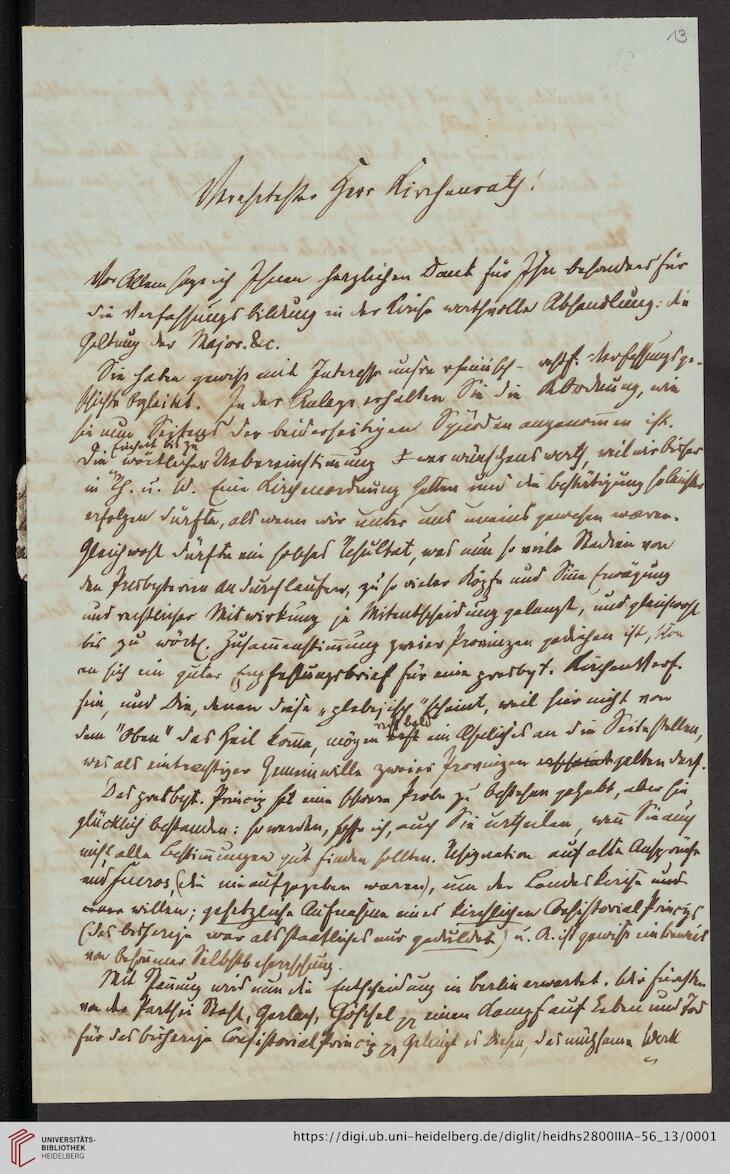 13
13
Verehrtester Herr Kirchenrath!
Vor Allem sage ich Ihnen herzlichen Dank für Ihre besonders für
die Verfassungsbildung in der Kirche werthvolle Abhandlung: die
Geltung der Major. &c.
Sie haben gewiß mit Interesse unsre rheinisch-westf. Verfassungsge-
schichte begleitet. In der Anlage erhalten Sie die KOrdnung, wie
sie nun Seitens der beiderseitigen Synoden angenommen ist.
Einheit bis zu
Die wörtlicher Uebereinstimmung war wünschenswerth, weil wir bisher
in Rh. u. W. Eine Kirchenordnung hatten und die Bestätigung so leichter
erfolgen dürfte, als wenn wir unter uns uneins gewesen wären.
Gleichwohl dürfte ein solches Resultat, was nun so viele Stadien von
den Presbyterien an durchlaufen, zu so vieler Köpfe und Sinne Erwägung
und rechtlicher Mitwirkung ja Mitentscheidung gelangt, und gleichwohl
bis zu wörtl. Zusammenstimmung zweier Provinzen gediehen ist, schon
an sich ein guter Empfehlungsbrief für eine presbyt. Kirchenverf.
sein, und Die, denen diese „plebejisch" scheint, weil hier nicht von
dem "Oben" das Heil komme, mögen recht bald ein Aehnliches an die Seite stellen,
was als einträchtiger Gemeinwille zweier Provinzen gelten darf.
Das presbyt. Princip hat eine schwere Probe zu bestehen gehabt, aber sie
glücklich bestanden: so werden, hoffe ich, auch Sie urtheilen, wenn Sie auch
nicht alle Bestimmungen gut finden sollten. Resignation auf alte Ansprüche
und fueros (die nie aufgegeben waren), um der Landeskirche und
willen; gesetzliche Aufnahme eines kirchlichen Consistorial Princips
(das bisherige war als staatliches nur geduldet) u. A. ist gewiß ein Beweis
von besonnener Selbstbeherrschung.
Mit Spannung wird nun die Entscheidung in Berlin erwartet. Wir fürchten
von der Parthei Stahl, Gerlach, Göschel pp einen Kampf auf Leben und Tod
für das bisherige Consistorial Princip pp Gelingt es Diesen, das mühsame Werk
UNIVERSITÄTS-
BIBLIOTHEK
HEIDELBERG
https://digi.ub.uni-heidelberg.de/diglit/heidhs2800IIIA-56_13/0001